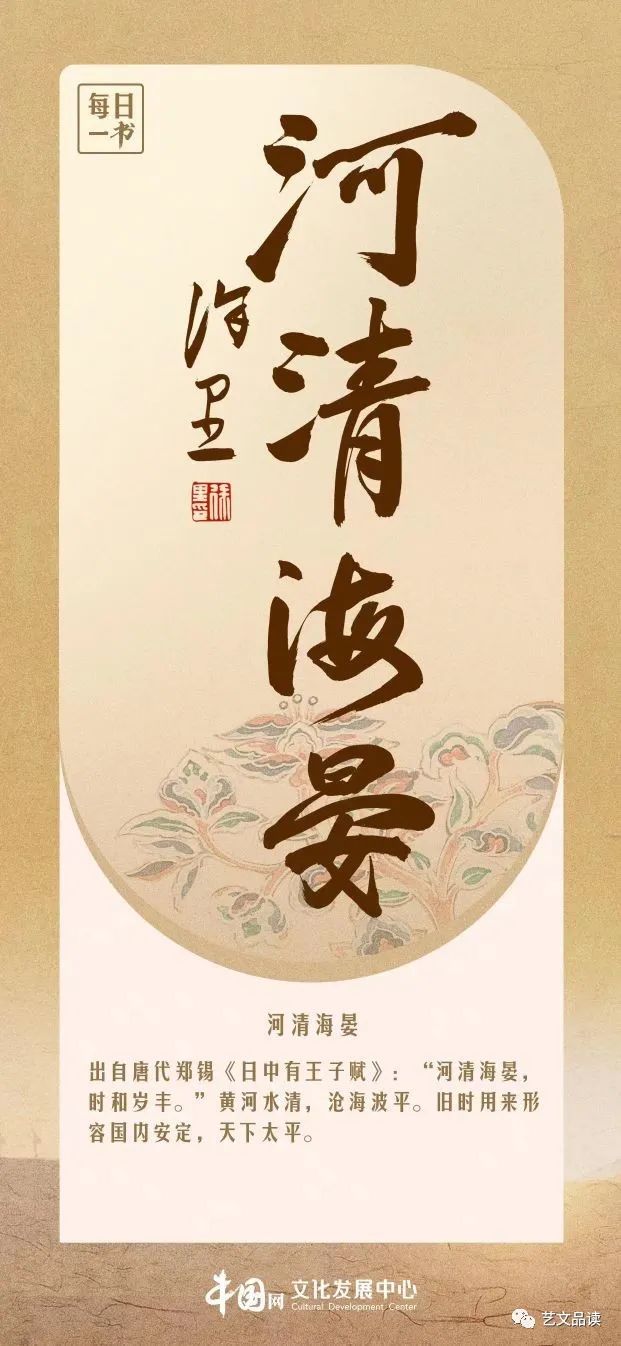 每日
一书
河清海晏
徐里
河清海晏
出自唐代郑锡《日中有王子赋》：“河清海晏，
时和岁丰。”黄河水清，沧海波平。旧时用来形
容国内安定，天下太平。
中国网 文化发展中心
Cultural Development Center
艺文品读